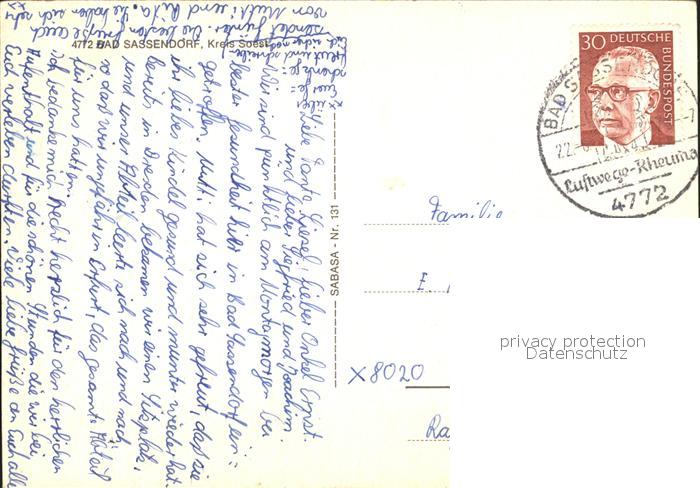 4772 BAD SASSENDORF, Kreis Soest
SABASA - Nr. 131
Liebe Tante Liesel, lieber Onkel Ernst,
und lieber Siegfried und Joachim.
Wir sind pünktlich am Montagmorgen bei
bester Gesundheit hier in Bad Sassendorf ein=
getroffen. Mutti hat sich sehr gefreut, daß sie
ihr liebes Kindel gesund und munter wieder hat.
Bereits in Dresden bekamen wir einen Sitzplatz,
und unser Abteil leerte sich nach und nach,
so daß wir ungefähr in Erfurt, das gesamte Abteil
für uns hatten.
Ich bedanke mich recht herzlich für den herrlichen
Aufenthalt und für die schönen Stunden die wir bei
Euch verleben durften. Viele liebe Grüße an Euch alle
sendet Günter. Die besten Grüße auch
von Mutti und Rita. Sie haben sich
sehr
über
Eure
gefreut und
30 DEUTSCHE
BUNDESPOST
BAD SASSENDORF
22.-
Luftwege-Rheuma
4772
Familie
E.
X 8020
Ra
privacy protection
Datenschutz